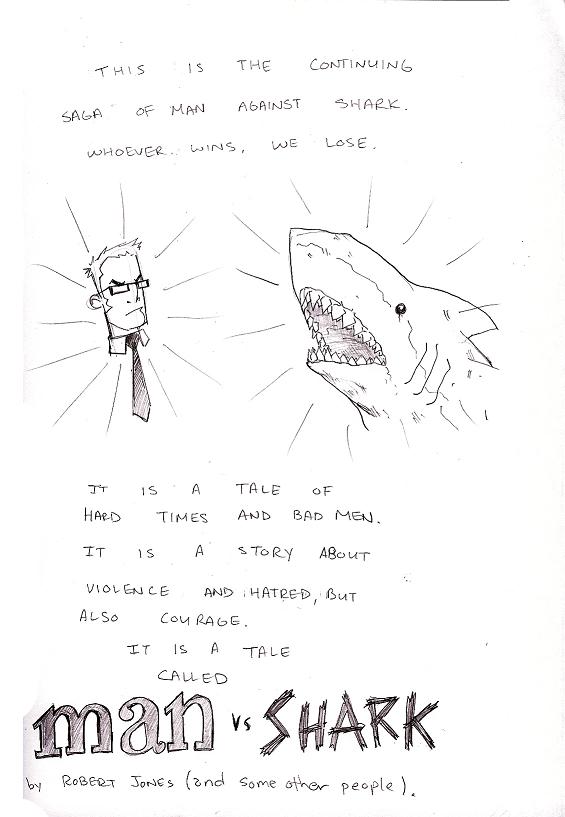 THIS IS THE CONTINUING
SAGA OF MAN AGAINST SHARK.
WHOEVER WINS, WE LOSE.
IT IS A TALE OF
HARD TIMES AND BAD MEN.
IT IS A STORY ABOUT
VIOLENCE AND HATRED, BUT
ALSO COURAGE.
IT IS A TALE
CALLED
man vs SHARK
by ROBERT JONES (and some other people).